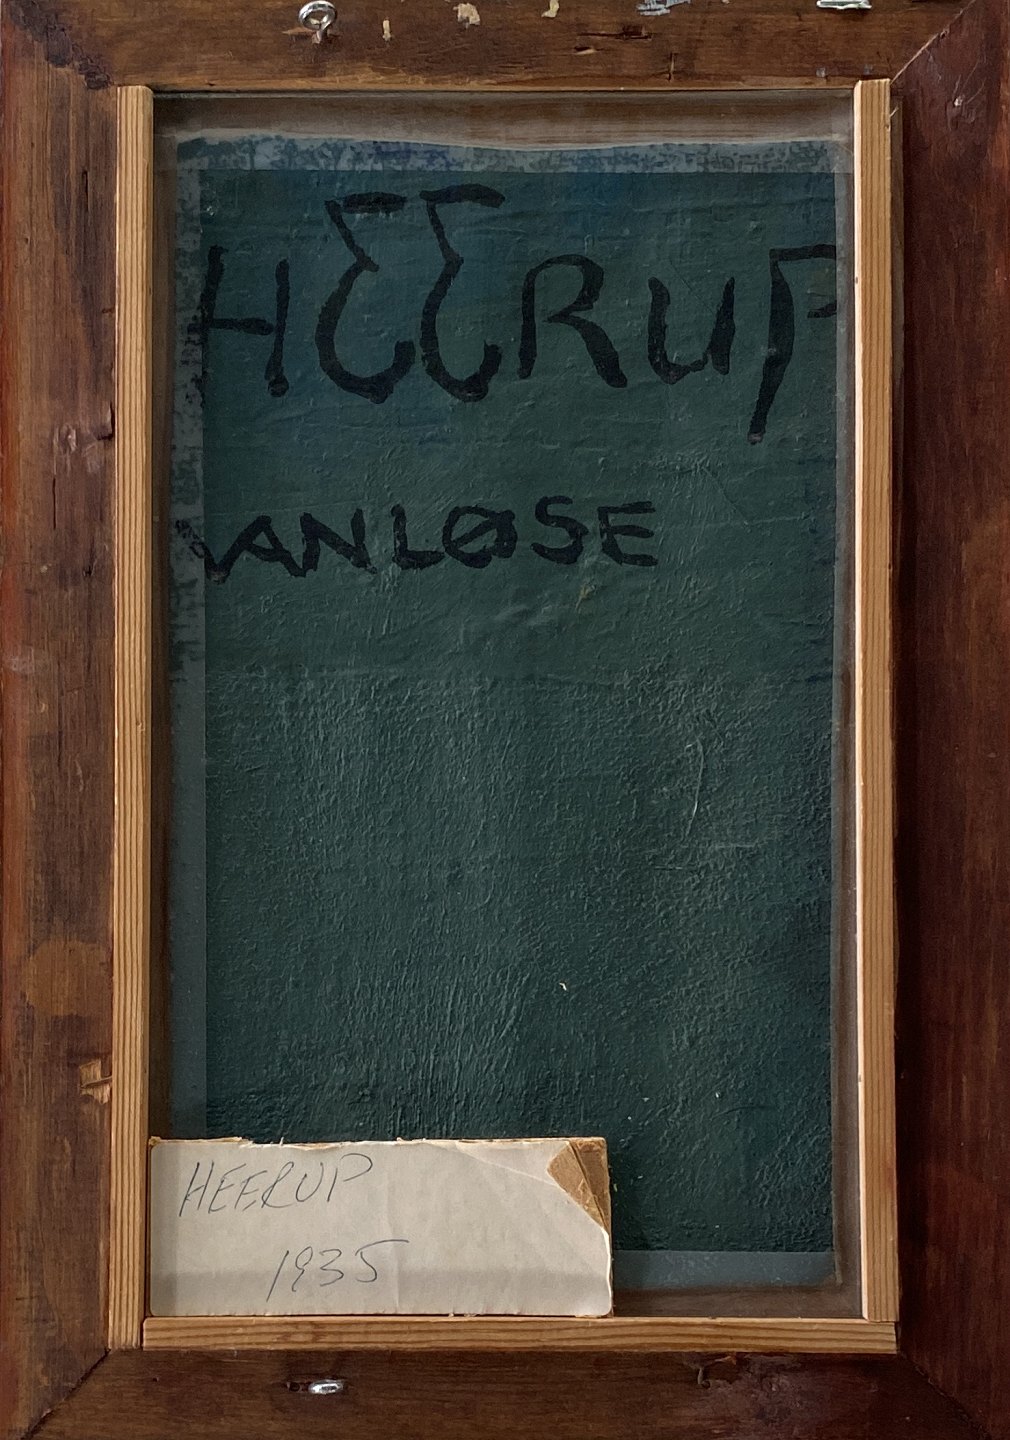 HEERUP
VANLØSE
HEERUP
1935